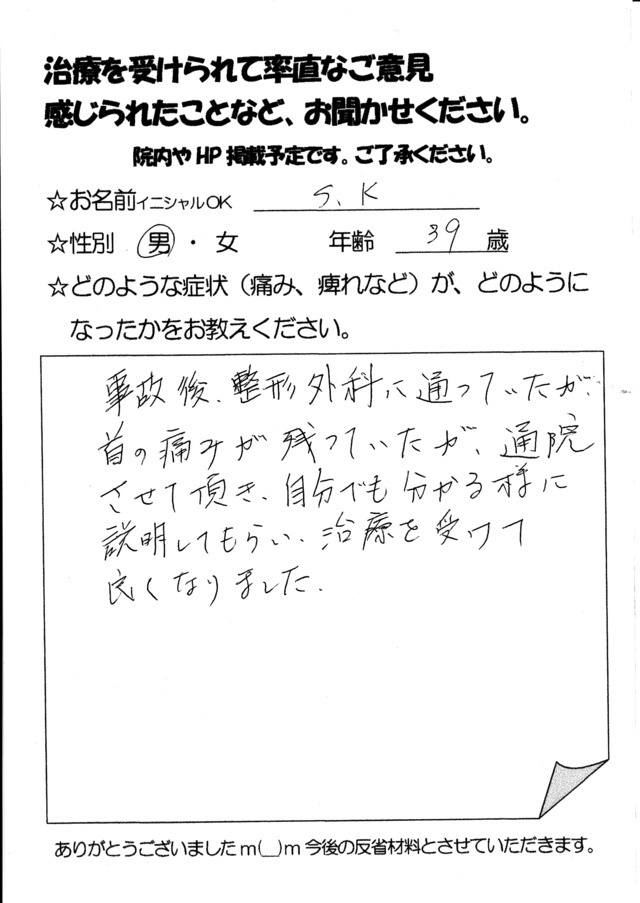 治療を受けられて率直なご意見
感じられたことなど、お聞かせください。
院内やHP掲載予定です。ご了承ください。
☆お名前イニシャルOK S、K
☆性別 男・女 年齢 39 歳
☆どのような症状（痛み、痺れなど）が、どのように
なったかをお教えください。
事故後、整形外科に通っていたが、
首の痛みが残っていたが、通院
させて頂き、自分でも分かる様に
説明してもらい、治療を受けて
良くなりました。
ありがとうございましたm(__)m今後の反省材料とさせていただきます。